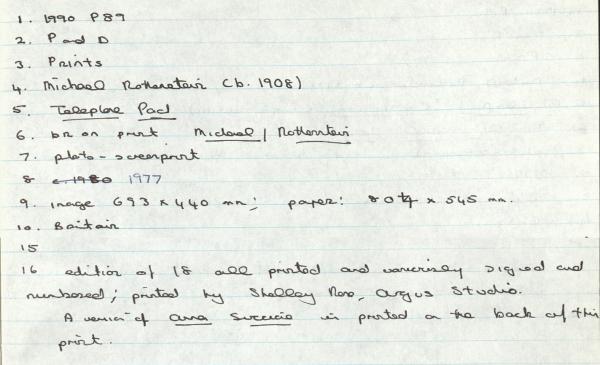 1. 1990 P89
2. P and D
3. Prints
4. Michael Rothenstein (b. 1908)
5. Telephone Pad
6. br on print Michael / Rothenstein
7. photo-screenprint
8 c.1980 1977
9. image 693 x 440 mm; paper: 804 x 545 mm.
10. Britain
15
16 edition of 18 all printed and variously signed and
numbered; printed by Shelley Rose, Argus Studio.
A version of is printed on the back of this
print.